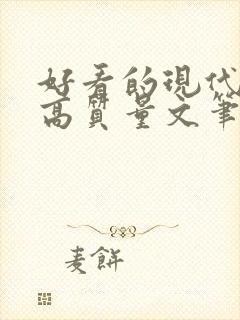 好看的现代
高质量文笔
麦餅